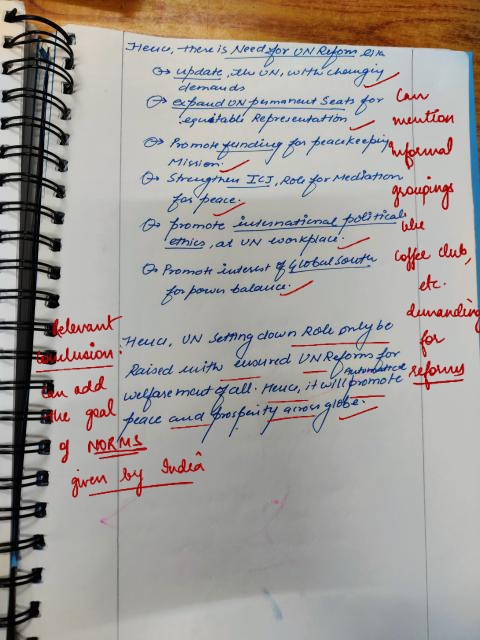 Hence, there is Need for UN Reform like
update, the UN, with changing
demands
expand UN permanent Seats for
equitable Representation
Promote funding for peacekeeping
Mission.
Strengthen ICJ, Role for Mediation
for peace.
promote international political
ethics, at UN workplace.
Promote interest of Global South
for power balance.
Can
mention
informal
groupings
like
coffee club,
etc.
demanding
for
reforms
Hence, UN setting down Role only be
Raised with ensured UN Reforms for
welfare ment of all. Hence, it will promote
peace and prosperity across globe.
Relevant
conclusion:
can add
the goal
of NORMS
given by India